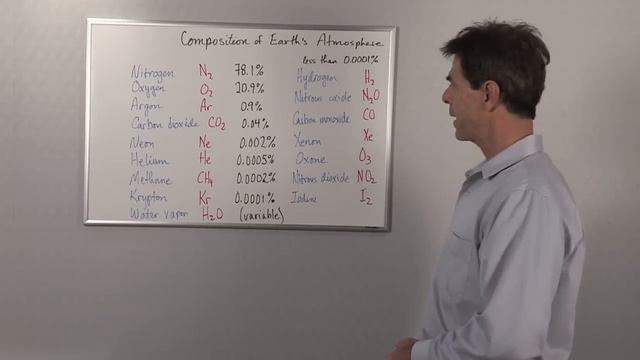 Composition of Earth's Atmosphere
Nitrogen N2 78.1%
Oxygen O2 20.9%
Argon Ar 0.9%
Carbon dioxide CO2 0.04%
Neon Ne 0.002%
Helium He 0.0005%
Methane CH4 0.0002%
Krypton Kr 0.0001%
Water vapor H2O (variable)
less than 0.0001%
Hydrogen H2
Nitrous oxide N2O
Carbon monoxide CO
Xenon Xe
Ozone O3
Nitrous dioxide NO2
Iodine I2